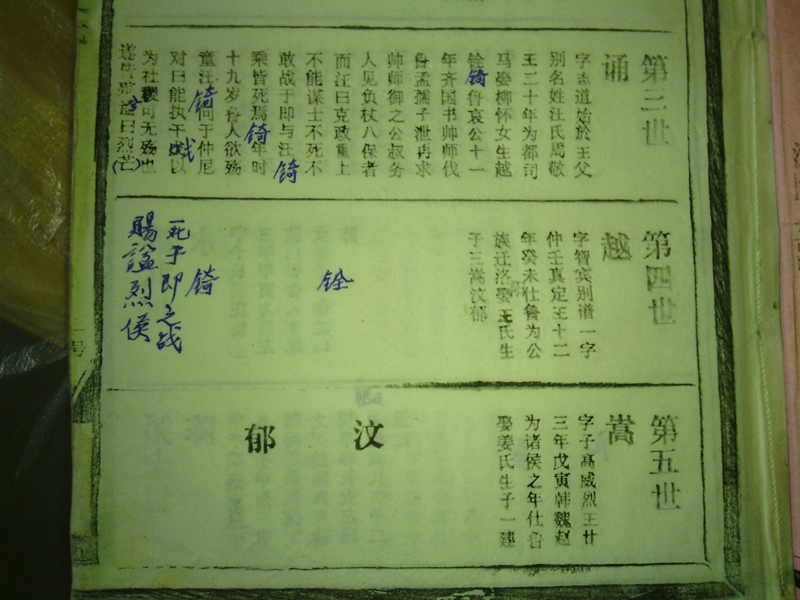 第三世
诵
字志道始於王父
别名姓汪氏周敬
王二十年为都司
马娶柳怀女生越
铨锜鲁哀公十一
年齐国书帅师伐
鲁孟孺子泄再求
帅师御之公叔务
人见负杖八保者
而汪曰克政重上
不能谋士不死不
敢战于即与汪锜
乘皆死焉锜年时
十九岁鲁人欲殇
童汪锜问于仲尼
对曰能执干戈以
为社稷可无殇也
第四世
越
字智宾别谱一字
仲壬真定王十二
年癸未仕鲁为公
族迁洛娶王氏生
子三嵩汶郁
铨
锜
死于即之战
賜謚烈侯
第五世
嵩
字子髙威烈王廿
三年戊寅韩魏赵
为诸侯之年仕鲁
娶姜氏生子一建
汶
郁
号